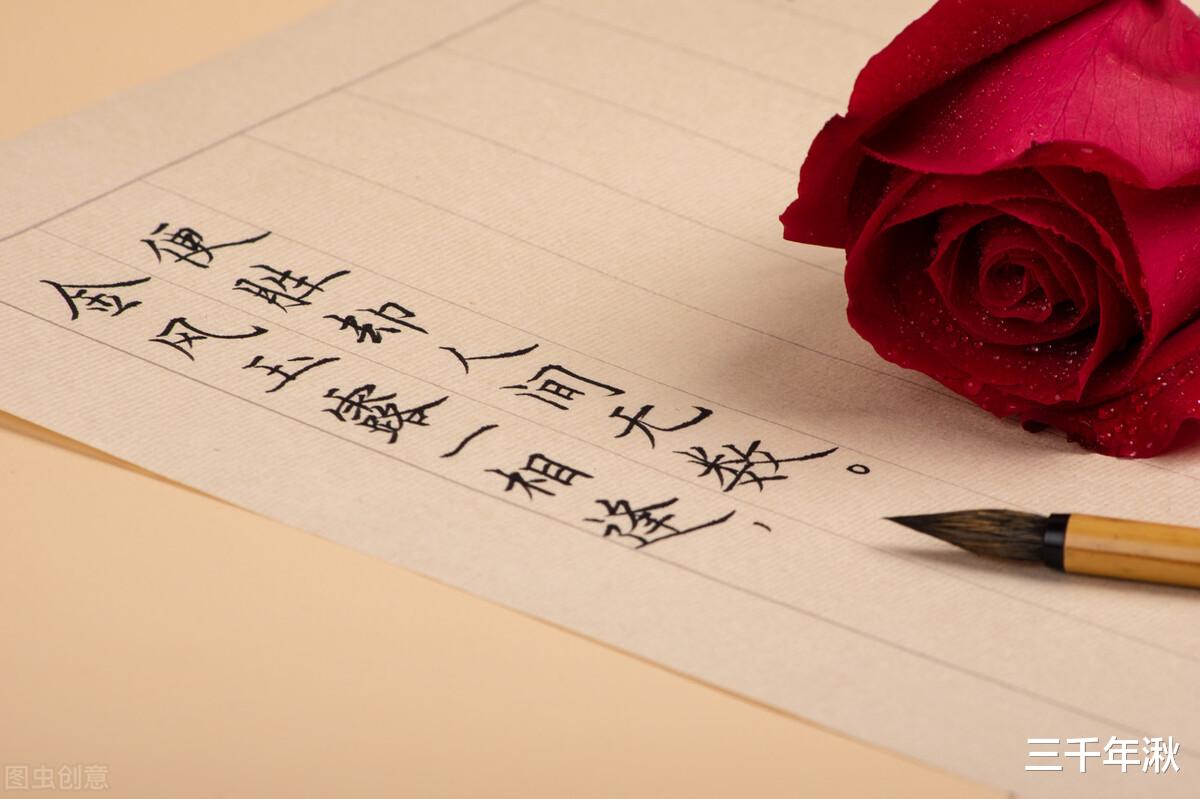 金风玉露一相逢，
便胜却人间无数。
图虫创意
三千年湫